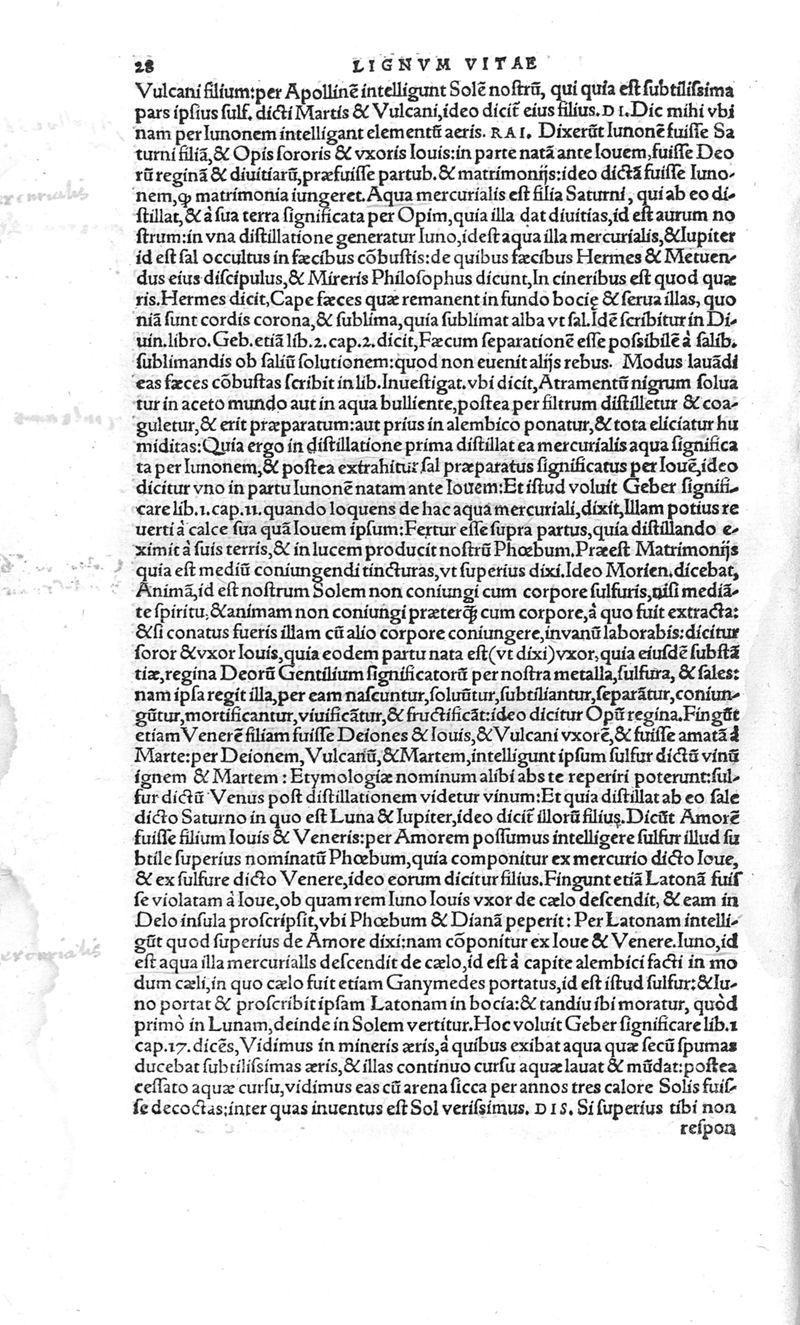 28 LIGNVM VITAE
Vulcani filium:per Apollinē intelligunt Solē noſtrū, qui quia eſt ſubtiliſsima
pars ipſius ſulf. dicti Martis & Vulcani,ideo dicit̄ eius filius. D I. Dic mihi vbi
nam per Iunonem intelligant elementū aeris. R A I. Dixerūt Iunonē fuiſſe Sa
turni filiā,& Opis ſororis & vxoris Iouis:in parte natā ante Iouem,fuiſſe Deo
rū reginā & diuitiarū,præfuiſſe partub.& matrimonijs:ideo dictā fuiſſe Iuno-
nem,ꝙ matrimonia iungeret.Aqua mercurialis eſt filia Saturni, qui ab eo di-
ſtillat,& à ſua terra ſignificata per Opim,quia illa dat diuitias,id eſt aurum no
ſtrum:in vna diſtillatione generatur Iuno,ideſt aqua illa mercurialis,&Iupiter
id eſt ſal occultus in fæcibus cōbuſtis:de quibus fæcibus Hermes & Metuen-
dus eius diſcipulus,& Mireris Philoſophus dicunt,In cineribus eſt quod quæ
ris.Hermes dicit,Cape fæces quæ remanent in fundo bocię & ſerua illas, quo
niā ſunt cordis corona,& ſublima,quia ſublimat alba vt ſal.Idē ſcribitur in Di-
uin.libro.Geb.etiā lib.2.cap.2.dicit,Fæcum ſeparationē eſſe poſsibilē à ſalib.
ſublimandis ob ſaliū ſolutionem:quod non euenit alijs rebus. Modus lauādi
eas fæces cōbuſtas ſcribit in lib.Inueſtigat.vbi dicit,Atramentū nigrum ſolua
tur in aceto mundo aut in aqua bulliente,poſtea per filtrum diſtilletur & coa-
guletur,& erit præparatum:aut prius in alembico ponatur,& tota eliciatur hu
miditas:Quia ergo in diſtillatione prima diſtillat ea mercurialis aqua ſignifica
ta per Iunonem,& poſtea extrahitur ſal præparatus ſignificatus per Iouē,ideo
dicitur vno in partu Iunonē natam ante Iouem:Et iſtud voluit Geber ſignifi-
care lib.1.cap.11.quando loquens de hac aqua mercuriali,dixit,Illam potius re
uerti à calce ſua quā Iouem ipſum:Fertur eſſe ſupra partus,quia diſtillando e-
ximit à ſuis terris,& in lucem producit noſtrū Phœbum.Præeſt Matrimonijs
quia eſt mediū coniungendi tincturas,vt ſuperius dixi.Ideo Morien.dicebat,
Animā,id eſt noſtrum Solem non coniungi cum corpore ſulfuris,niſi mediā-
te ſpiritu,&animam non coniungi præterꝙ̄ cum corpore,à quo fuit extracta:
&ſi conatus fueris illam cū alio corpore coniungere,invanū laborabis:dicitur
ſoror &vxor Iouis,quia eodem partu nata eſt(vt dixi)vxor,quia eiuſdē ſubſtā
tiæ,regina Deorū Gentilium ſignificatorū per noſtra metalla,ſulfura, & ſales:
nam ipſa regit illa,per eam naſcuntur,ſoluūtur,ſubtiliantur,ſeparātur,coniun-
gūtur,mortificantur,viuificātur,& fructificāt:ideo dicitur Opū regina.Fingūt
etiam Venerē filiam fuiſſe Deiones & Iouis,& Vulcani vxorē,& fuiſſe amatā à
Marte:per Deionem,Vulcanū,&Martem,intelligunt ipſum ſulfur dictū vinū
ignem & Martem : Etymologiæ nominum alibi abs te reperiri poterunt:ſul-
fur dictū Venus poſt diſtillationem videtur vinum:Et quia diſtillat ab eo ſale
dicto Saturno in quo eſt Luna & Iupiter,ideo dicit̄ illorū filius. Dicūt Amorē
fuiſſe filium Iouis & Veneris:per Amorem poſſumus intelligere ſulfur illud ſu
btile ſuperius nominatū Phœbum,quia componitur ex mercurio dicto Ioue,
& ex ſulfure dicto Venere,ideo eorum dicitur filius.Fingunt etiā Latonā fuiſ
ſe violatam à Ioue,ob quam rem Iuno Iouis vxor de cælo deſcendit, & eam in
Delo inſula proſcripſit,vbi Phœbum & Dianā peperit : Per Latonam intelli-
gūt quod ſuperius de Amore dixi:nam cōponitur ex Ioue & Venere.Iuno,id
eſt aqua illa mercurialls deſcendit de cælo,id eſt à capite alembici facti in mo
dum cæli,in quo cælo fuit etiam Ganymedes portatus,id eſt iſtud ſulfur:&Iu-
no portat & proſcribit ipſam Latonam in bocia:& tandiu ibi moratur, quòd
primò in Lunam,deinde in Solem vertitur.Hoc voluit Geber ſignificare lib.1
cap.17.dicēs,Vidimus in mineris æris,à quibus exibat aqua quæ ſecū ſpumas
ducebat ſubtiliſsimas æris,& illas continuo curſu aquæ lauat & mūdat:poſtea
ceſſato aquæ curſu,vidimus eas cū arena ſicca per annos tres calore Solis fuiſ-
ſe decoctas:inter quas inuentus eſt Sol veriſsimus. D I S. Si ſuperius tibi non
reſpon